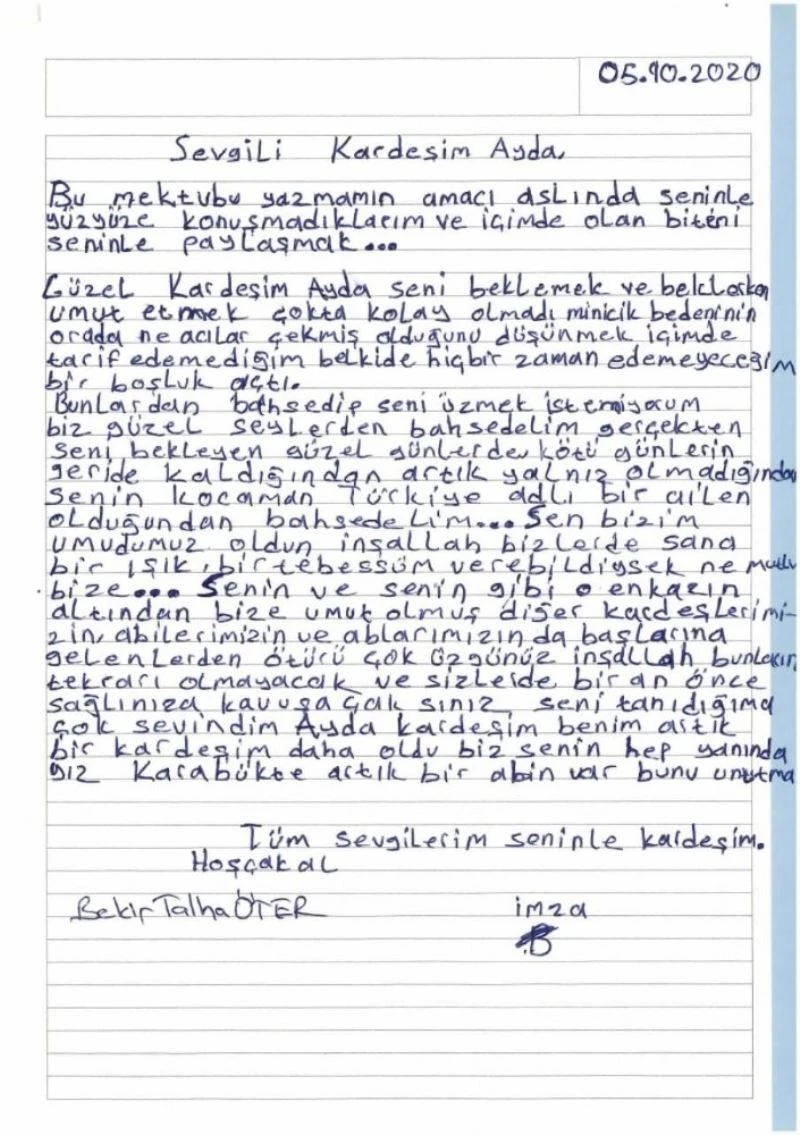 05.10.2020
Sevgili Kardeşim Ayda,
Bu mektubu yazmamın amacı aslında seninle
yüzyüze konuşmadıklarım ve içimde olan biteni
seninle paylaşmak...
Güzel Kardeşim Ayda seni beklemek ve beklerken
umut etmek çokta kolay olmadı minicik bedeninin
orada ne acılar çekmiş olduğunu düşünmek içimde
tarif edemediğim belkide hiçbir zaman edemeyeceğim
bir boşluk açtı.
Bunlardan bahsedip seni üzmek istemiyorum
biz güzel şeylerden bahsedelim gerçekten
seni bekleyen güzel günlerden kötü günlerin
geride kaldığından artık yalnız olmadığından
senin kocaman Türkiye adlı bir ailen
olduğundan bahsedelim... Sen bizim
umudumuz oldun inşallah bizlerde sana
bir ışık, bir tebessüm verebildiysek ne mutlu
bize... Senin ve senin gibi o enkazın
altından bize umut olmuş diğer kardeşlerimi-
zin, abilerimizin ve ablarımızın da başlarına
gelenlerden ötürü çok üzgünüz inşallah bunların
tekrarı olmayacak ve sizlerde bir an önce
sağlınıza kavuşaçak sınız seni tanıdığıma
çok sevindim Ayda kardeşim benim artık
bir kardeşim daha oldu biz senin hep yanında
yız Karabükte artık bir abin var bunu unutma
Tüm sevgilerim seninle kardeşim.
Hoşçakal
Bekir Talha ÖTER imza
B